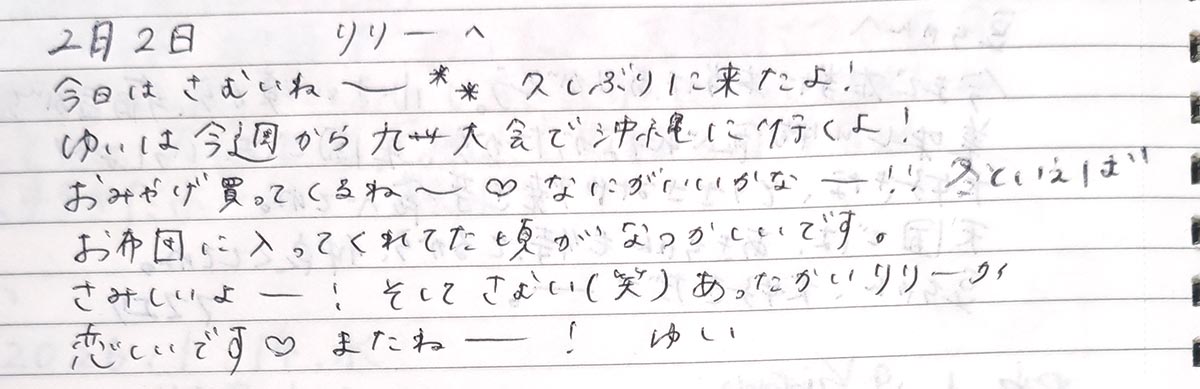 2月2日 リリーへ
今日はさむいね〜** 久しぶりに来たよ!
ゆいは今週から九州大会で沖縄に行くよ!
おみやげ買ってくるね〜♡ なにがいいかなー!! 冬といえば
お布団に入ってくれてた頃がなつかしいです。
さみしいよー! そしてさむい(笑) あったかいリリーが
恋しいです♡ またねー! ゆい